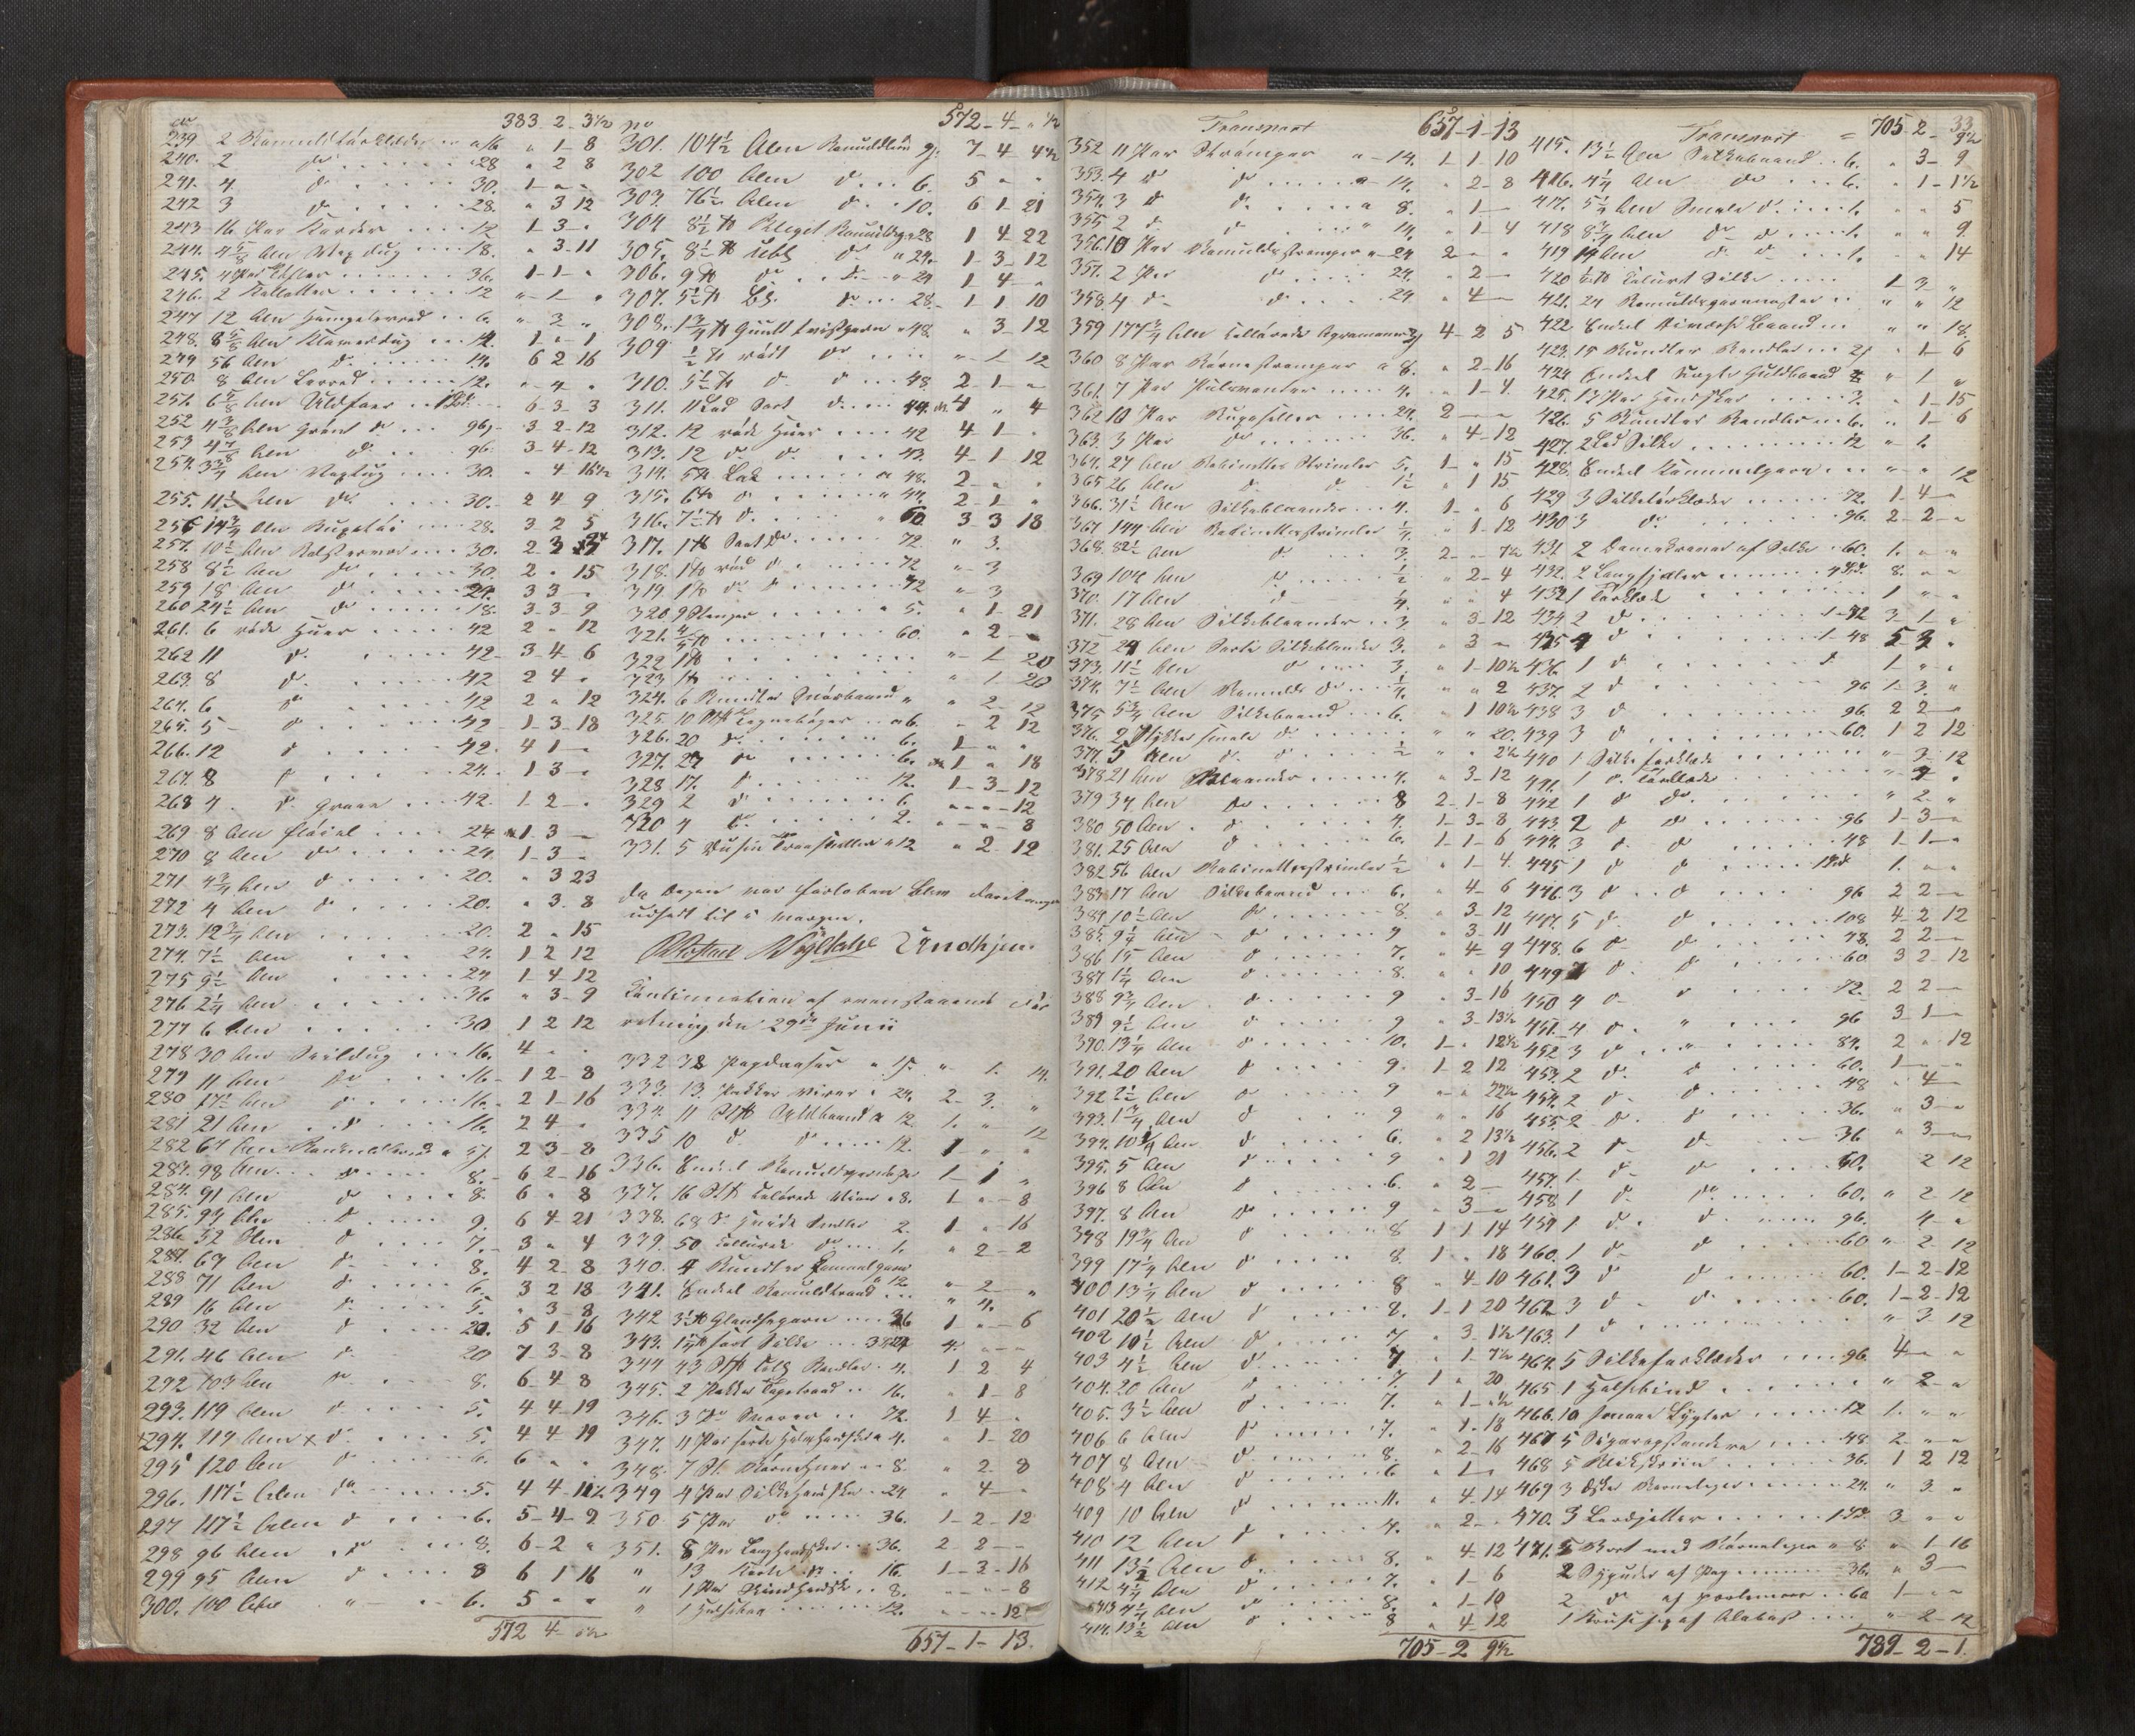 no 383 - 2 - 3½
239 2 Bomuldstörklæder .. a 16 " 1 - 8
240. 2 do 28 " 2 8
241. 4 do 30. 1 - " -
242 3 do 28. " 3 12
243 16 Par Karder 12 1 - 3 - "
244. 4⅝ Alen Vox dug 18. " 3 - 11
245. 4 Par 36. 1 - 1 - "
246. 2 12 " - 1 - "
247 12 Alen Hampelerred .. 6. " - 3 "
248. 8⅝ Alen Klaverdug 14. 1 - " - 1
249 56 Alen do 14. 6 2 16
250. 8 Alen Lerred 12. " - 4 "
251. 6 Alen Uldfoer 6 - 3 - 3
252 4 Alen Grønt do 96 3 - 2 - 12
253 4⅞ Alen do 96. 3 - 4 - 12
254. 3¾ Alen Vaxtug 30. " 4 16½
255. 11½ Alen do 30. 2 4 9
256 14¾ Alen 28. 3 2 5
257. 10½ Alen 30. 2 3
258 8½ Alen do 30. 2 " 15
259 18 Alen do 24. 3 3 - "
260 24½ Alen do 18. 3 - 3 - 9
261. 6 røde Huer 42 2 " 12
262 11 do 42 - 3 - 4 - 6
263. 8 do 42 2 4 "
264. 6 do 42 2 " 12
265. 5 - do 42 1 - 3 - 18
266. 12 do 42. 4 1 -
267. 8 do 24. 1 3 -
268 4. do graae 42. 1 - 2 - "
269 8 Alen fløiel 24 1 - 3 -
270 8 Alen do 24. 1 - 3 -
271 4¾ Alen do 20. " 3 23
272 4 Alen do 20. " 3 - 8
273. 12¾ Alen 20. 2 " 15
274. 7½ Alen 24. 1 2 12
275 9½ Alen 24 1 - 4 - 12
276 2¼ Alen 36 " 3 - 9
277 6 Alen 30 1 2 12
278 30 Alen Seildug 16. 4 " "
279 11 Alen do 16 - 1 2 - 8
280 17½ Alen do 16. 2 1 - 16
281 21 Alen do 16. 2 4 - "
282 67 Alen Bomuldbaand 2 3 - 8
283. 98 Alen do 8. 6 2 - 16
284. 91 Alen do 8. 6 " 8
285. 93 Alen do 9. 6 4 - 21
286 52 Alen do 7. 3 " 4
287. 67 Alen do 8. 4 2 - 8
288 71 Alen do 6. 3 2 18
289 16 Alen do 5. " 3 - 8
290 32 Alen do 20. 5 1 - 16
291. 46 Alen do 20 7 - 3 - 8
292 109 Alen do 8. 6 - 4 - 8
293. 119 Alen do 5. 4 4 - 19
+294. 119 Alen x do 5. 4 4 19
295 120 Alen do 6. 6 " "
296. 117½ Alen do 5. 4 4 - 11½
297 117½ Alen do 6. 5 - 4 - 9
298 96 Alen do 8. 6 - 2 "
299 95 Alen do 8 6 1 16
300. 100 Alen " 6. 5 " "
572 4 - "½
no 572 - 4 - " ½
301. 104½ Alen Bomuldbaand 7 - 4 - 4½
302 100 Alen do 6. 5 " "
303. 76½ Alen do 10. 6 1 - 21
304 8½ ℔ Bleget Bomuldsg 28 1 4 - 22
305. 8½ ℔ Ubl. do 24. 1 - 3 - 12
306. 9 ℔ do 24 1 4 - "
307. 5½ ℔ Bl. do 28. 1 1 10
308. 1¾ ℔ Guult Tvistgarn 48. " 3 - 12
309 ½ ℔ rødt do " - 1 - 12
310. 5½ ℔ do do 48 2 - 1 - "
311. 11 Lod Sort do 4 " 4
312. 12 røde Huer 42 4 - 1 - "
313. 12 do do 43. 4 - 1 - 12
314. 5 ℔ Lak 48. 2 - "
315. 6 ℔ do 44. 2 - 1 "
316. 7½ ℔ do 60. 3 3 18
317. 1 ℔ Sort do 72. " 3.
318. 1 ℔ rød do 72 " - 3
319. 1 ℔ do 72 " - 3
320 9 Stænger 5. " 1 - 21
321. ⅘ ℔ 60. " 2 - "
322 1 ℔ " - 1 20
323 1 ℔ " - 1 20
324. 6 Bundter Snørebaand " " 2 - 12
325. 10 Stk Tegnebøger 6. " 2 12
326. 20 do 6. 1 - " "
327. 27 do 6. 1 " 18
328 17. do 12. 1 - 3 - 12
329 2 do 6. " - " - 12
330 4 do 2. " - " - 8
331. 5 Dusin 12 " 2 12
Da Dagen var forløben blev Forretningen
udsat til i Morgen.
Continuation af ovenstaaende For
retning den 29de Junii
332 38 " 1. 14.
333. 13. Pakker Virer 24. 2 - 3. "
334. 11 Stk Guldbaand 12. 1. " 12
335 10 do do 12. 1 " "
336. Endeel Bomuldsgarn 1 - 1 "
337. 16 Stk Colørede 8. 1 - " - 8
338. 68 St. Hvide 2. 1 " 16
339. 50 Colørede do 1. " 2 - 2
340. 4 Bundter Camelgarn a 12 " - 2 - "
341. Endeel Bomuldtraad " 4.
342 3½ ℔ Glandsgarn 36 1 - " - 6
343. 1¼ ℔ sort Silke 4 - " - "
344 43 Stk Bændler 4. 1 2 4
345. 2 Pakker 16. " 1 - 8
346. 3 do Snorer 72. 1 4 - "
347. 11 Par sorte 4. " 1 - 20
348. 7 St. Børnehuer 8. " 2. 8
349 4 Par Silkehandsker 24 " 4 - "
350 5 Par do 36. 1 - 2 - 12
351. 8 Par Langhandsker 36. 2 - 2 -
" 13 Korte do 16. 1 - 3 - 16
" 1 Par Skindhandsker 8. " - " - 8
" 1 12. " - " - 12
657 - 1 - 13.
Transport 657 - 1 - 13
352 11 Par Strømper 14. 1 1 10
353. 4 do do 14. " 2 - 8
354. 3 do do 8. " 1 -
355 2 do do 14. " 1 - 4
356. 10 Par Bomuldsstrømper 24 2 - "
357. 2 Par do 24. " 2 -
358. 4 do do 24 " 4 -
359 177¾ Alen Collørede Agramaner 4 - 2 5
360 8 Par Børnestrømper a 8. " 2 - 16
361. 7 Par Pulsvanter 4. " 1 - 4.
362 10 Par 24. 2 - "
363. 3 Par do 36. " 4 - 12
364. 27 Alen Kabinettes Strimler 5. 1 - " 15
365 26 Alen do do 1½ " 1 15
366. 31½ Alen Silkeblaander 4. 1 - " 6
367 144 Alen Kabinettesstrimler " 1 - 12
368. 82½ Alen do 3. 2 - " 7½
369 104 Alen do ½ " 2 - 4
370. 17 Alen do " " 4
371. 28 Alen Silkeblaander 3. " 3 - 12
372 24 Alen Sorte Silkeblander 3. " 3 - "
373. 11½ Alen do 3. " 1 - 10½
374. 7½ Alen Bomulds do " " 2
375 5¾ Alen Silkebaand 6. " 1 10½
376. 2 Stykker smale do " " 20.
377. 5 Alen do do ½ " " 2½
378. 21 Alen Blaander 4. " 3 - 12
379 34 Alen do 8 2 - 1 - 8
380 50 Alen do 4. 1 - 3 - 8
381. 25 Alen do 6. 1 - 1 - 6
382 56 Alen Kabinettesstrimler ½ " 1 - 4.
383 17 Alen Silkebaand 6. " 4 - 6
384. 10½ Alen do 8. " 3 - 12
385. 9¼ Alen do 9 " 3 - 11
386 15 Alen do 7. " 4 - 9
387 1¼ Alen do 8. " " 10
388 9¾ Alen do 9 " 3 - 16
389 9½ Alen do 9 " 3 - 13½
390. 13¼ Alen do 10. 1 - " 12½
391. 20 Alen do 9. 1 - 2 12
392 2½ Alen do 9 " - " 22½
393. 1¾ Alen do 9 " " 16
394. 10¼ Alen do 6. " 2 13½
395. 5 Alen do 9 " 1 21
396 8 Alen do 6. " 2 -
397. 8 Alen do 9 " 3 -
398 19¾ Alen do 8 1 1 14
399 17¼ Alen do 8. 1 " 18
400 13¼ Alen do 8 " 4 - 10
401 20½ Alen do 8. 1 - 1 20
402 10½ Alen do 7 " 3 1½
403 4½ Alen do 7 " 1 - 7½
404. 20 Alen do 7. 1 " 20
405. 3½ Alen do 7. " 1 - "½
406 6 Alen do 7. " 1 - 18
407 8 Alen do 8. " 2 - 16
408. 4 Alen do 6 " 1 -
409 10 Alen do 11. " 4 - 14
410 12 Alen do 4. " 2 - "
411 13½ Alen do 8. " 4 - 12
412 4¼ Alen do 7. " 1 - 6
413 4¼ Alen do 8. " 1 - 10
414. 13½ Alen do 8 " 4 - 12
705 - 2 9½
33
Transport = 705 - 2 - 9½
415. 13½ Alen Silkebaand 6. " 3 - 9
416. 4¼ Alen do 6. " 1 - 1½
417. 5¼ Alen Smale do 1. " " 5
418 8¾ Alen do do 1. " " 9.
419 14 Alen do do 1. " " 14
420 ½ ℔ Couleurt Silke 1 - 3 - "
421. 24 Bomuldsgarnnøgler " " 12
422 Endeel Baand " " 18.
423. 15 Bundter Bændler " 1 - 6
424 Endeel Guldbaand " 1 "
425. 13 Par Handsker 3. " 1 - 15
426. 5 Bundter Bændler 6. " 1 - 6
427. 2 Lod Silke 12 " 1.
428. Endeel Kammelgarn " - " 12
429 3 Silketørklæder 72. 1 - 4 - "
430 3 do 96. 2 - 2 - "
431 2 Damekraver af Silke 60. 1. " "
432. 2 Langsjæler 8. " "
433 1 Tørklæde 1 " "
434 2 do 3 - 1 - "
435 4 do 5 3 "
436 1 do 1 " "
437. 2 do 96 1 - 3. "
438 3 do 96. 2 2 - "
439 3 do 60. 1 2 12
440 1 Silke forklæde " 3 - 12
441. 1 do Tørklæde " 3 "
442 1 do do " 2 "
443. 2 do do 96 1 - 3 - "
444. 3 do do 48 1 - 1 - "
445 1 do do 1. " "
446. 3 do do 96 2 2 - "
447. 5 do do 108 4 - 2 12
448. 6 do do 48. 2 2 - "
449 7 do do 60 3 2 - 12
450 4 do do 72. 2 2 - "
451. 4 do " 96 3 1 - "
452 3 do " 84. 2 " 12
453. 2 do do 60. 1 - " - "
454. 2 do do 48 " 4 -
455. 2 do do 36. " 3 - "
456. 2 do do 36 " 3 - "
457. 1 do do 60. 2 12
458 1 do do 60. " 2 12
459 1 do do 96. 4 - "
460. 1 do do 60 " - 2 12
461. 3 do do 60. 1 - 2 - 12
462 3 do do 60. 1 - 2 - 12
463. 1 do " - 3 12
464. 5 Silkeforklæder 96. 4 - " "
465 1 Halsebind " 2 - "
466. 10 smaa Lygter 12 1. " "
467 5 Sigarogstandere 48. 2 - " - "
468 5 Blikskriin 36. 1 2 12
469 3 Æsker Børnelegeri 24. " 3 "
470. 3 3 " "
471. 5 Kort med Børnelegeri 8 " 1 - 16
2 Sypuder af Pap 36. " 3 -
2 do af 60 1 - " "
1 Krusifix af Alabast " - 2 - 12
789 - 2 - 1.